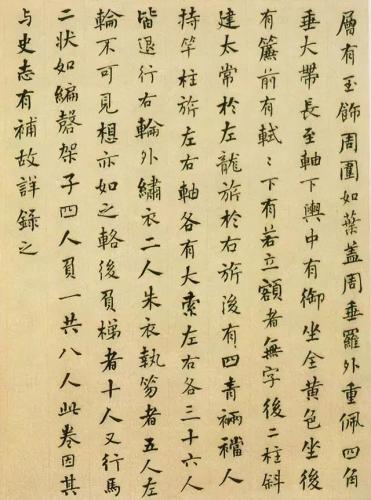 層有玉飾周圍如葉蓋周垂羅外重佩四角
垂大帶長至軸下輿中有御坐全黄色坐後
有簾前有軾〻下有若立額者無字後二柱斜
建太常於左龍旂於右旂後有四青裲襠人
持竿柱旂左右軸各有大索左右各三十六人
皆退行右輪外繡衣二人朱衣執笏者五人左
輪不可見想亦如之輅後負梯者十人又行馬
二状如編磬架子四人負一共八人此卷因其
与史志有補故詳録之